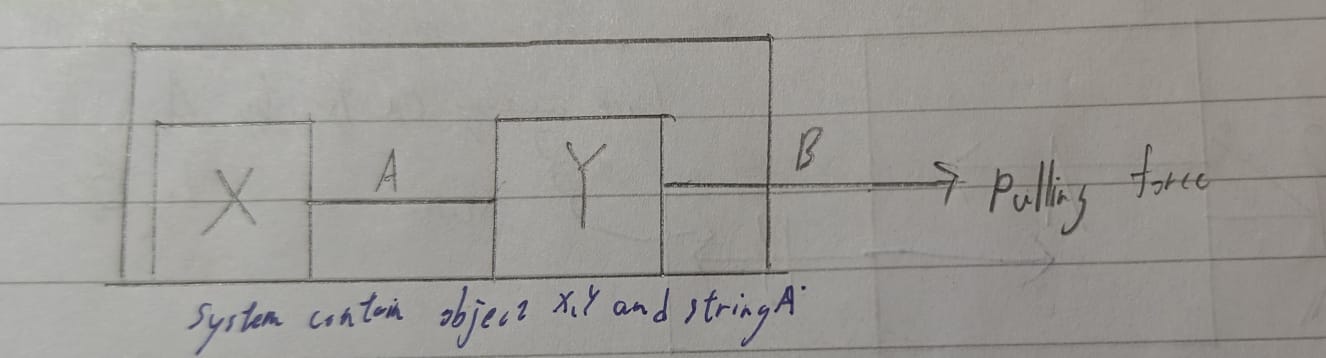 X
A
Y
B
Pulling force
System contain object X,Y and string A.